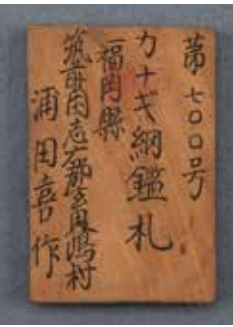 第七〇〇号
カナギ網鑑札
福岡縣
筑前国志广郡玄界嶋村
浦田喜作